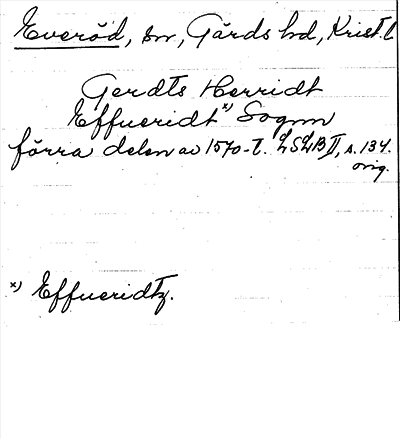 Everöd, sn, Gärds hd, Krist. l
Gerdts Herridt
Effueridt x) Sognn
förra delen av 1570-t. LSLB II, s. 134.
orig.
x) Effueridtz.